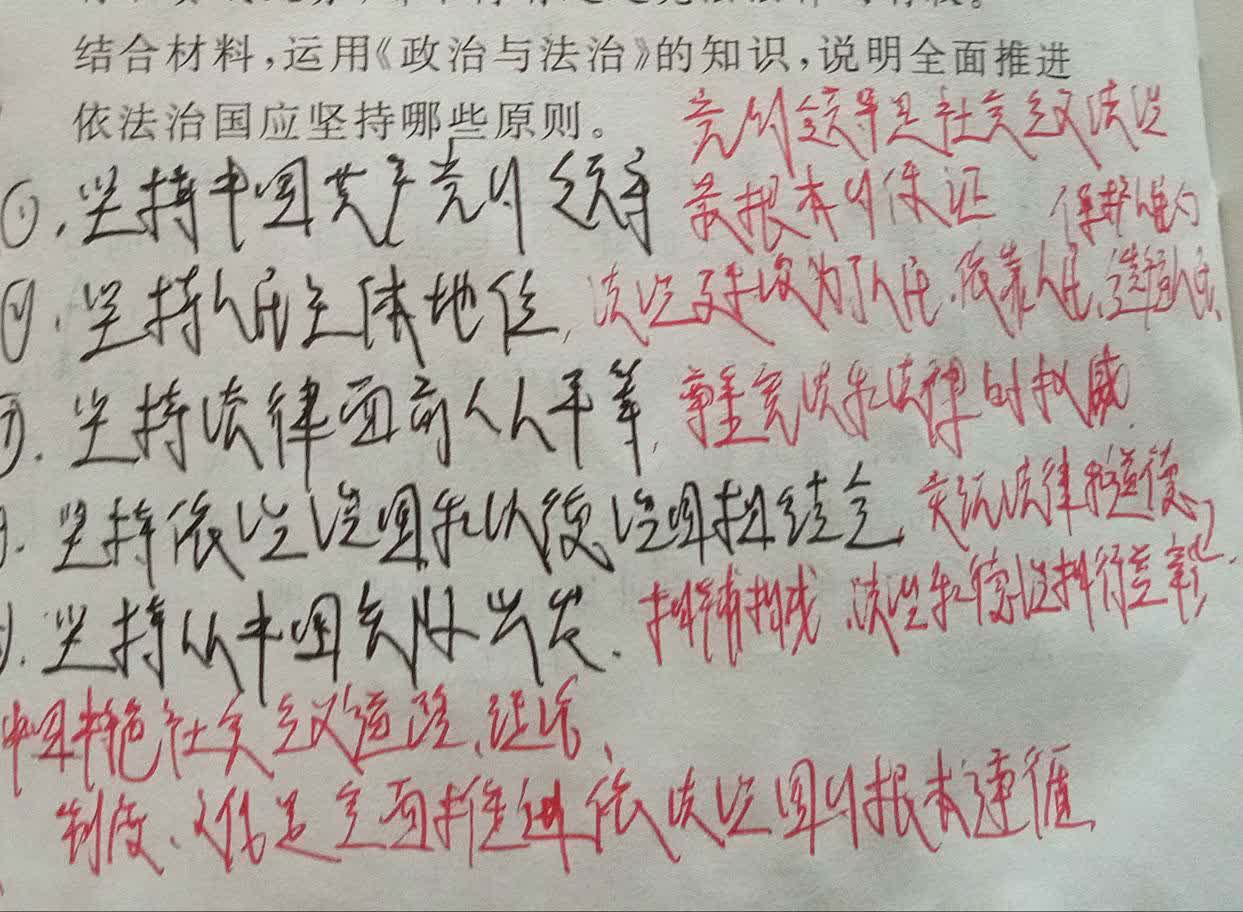 结合材料,运用《政治与法治》的知识,说明全面推进
依法治国应坚持哪些原则。
党的领导是社会主义法治
①.坚持中国共产党的领导 最根本的保证 保护人民
.坚持人民主体地位,法治建设为了人民.依靠人民.造福人民、
.坚持法律面前人人平等,尊重宪法和法律的权威.
.坚持依法治国和以德治国相结合,实现法律和道德
.坚持从中国实际出发. 相辅相成.法治和德治相得益彰.
中国特色社会主义道路、理论、
制度、文化是全面推进依法治国的根本遵循